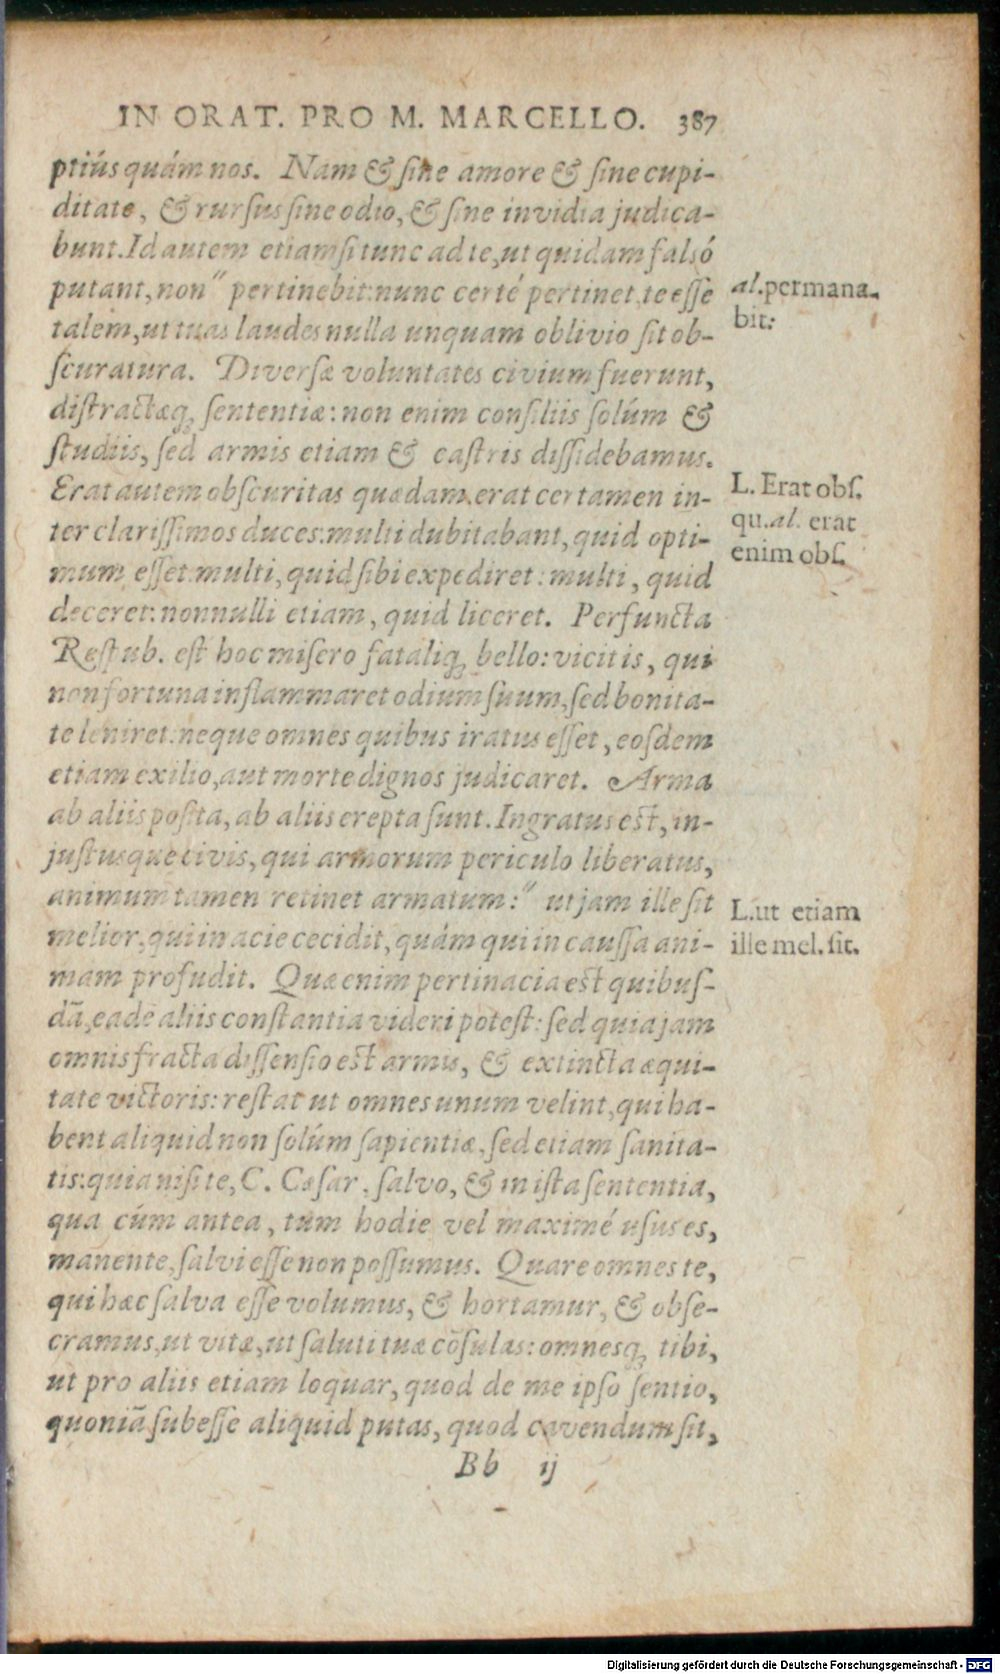 IN ORAT. PRO M. MARCELLO. 387
ptiús quám nos. Nam & sine amore & sine cupi-
ditate, & rursus sine odio, & sine invidia judica-
bunt. Id autem etiamsi tunc ad te, ut quidam falsó
putant, non" pertinebit: nunc certé pertinet, te esse
al. permana-
bit:
talem, ut tuas laudes nulla unquam oblivio sit ob-
scuratura. Diversæ voluntates civium fuerunt,
distractæq; sententiæ: non enim consiliis solúm &
studiis, sed armis etiam & castris dissidebamus.
Erat autem obscuritas quædam, erat certamen in-
L. Erat obs.
qu. al. erat
enim obs.
ter clarissimos duces: multi dubitabant, quid opti-
mum esset: multi, quid sibi expediret: multi, quid
deceret: nonnulli etiam, quid liceret. Perfuncta
Respub. est hoc misero fataliq; bello: vicit is, qui
non fortuna inflammaret odium suum, sed bonita-
te leniret: neque omnes quibus iratus esset, eosdem
etiam exilio, aut morte dignos judicaret. Arma
ab aliis posita, ab aliis erepta sunt. Ingratus est, in-
justusque civis, qui armorum periculo liberatus,
animum tamen retinet armatum:" ut jam ille sit
L. ut etiam
ille mel. sit.
melior, qui in acie cecidit, quám qui in caussa ani-
mam profudit. Quæ enim pertinacia est quibus-
dã, eadē aliis constantia videri potest: sed quia jam
omnis fracta dissensio est armis, & extincta æqui-
tate victoris: restat ut omnes unum velint, qui ha-
bent aliquid non solúm sapientiæ, sed etiam sanita-
tis: quia nisi te, C. Cæsar, salvo, & in ista sententia,
qua cúm antea, tum hodie vel maximé usus es,
manente, salvi esse non possumus. Quare omnes te,
qui hæc salva esse volumus, & hortamur, & obse-
cramus, ut vitæ, ut saluti tuæ cõsulas: omnesq; tibi,
ut pro aliis etiam loquar, quod de me ipso sentio,
quoniã subesse aliquid putas, quod cavendum sit,
Bb ij
Digitalisierung gefördert durch die Deutsche Forschungsgemeinschaft - DFG